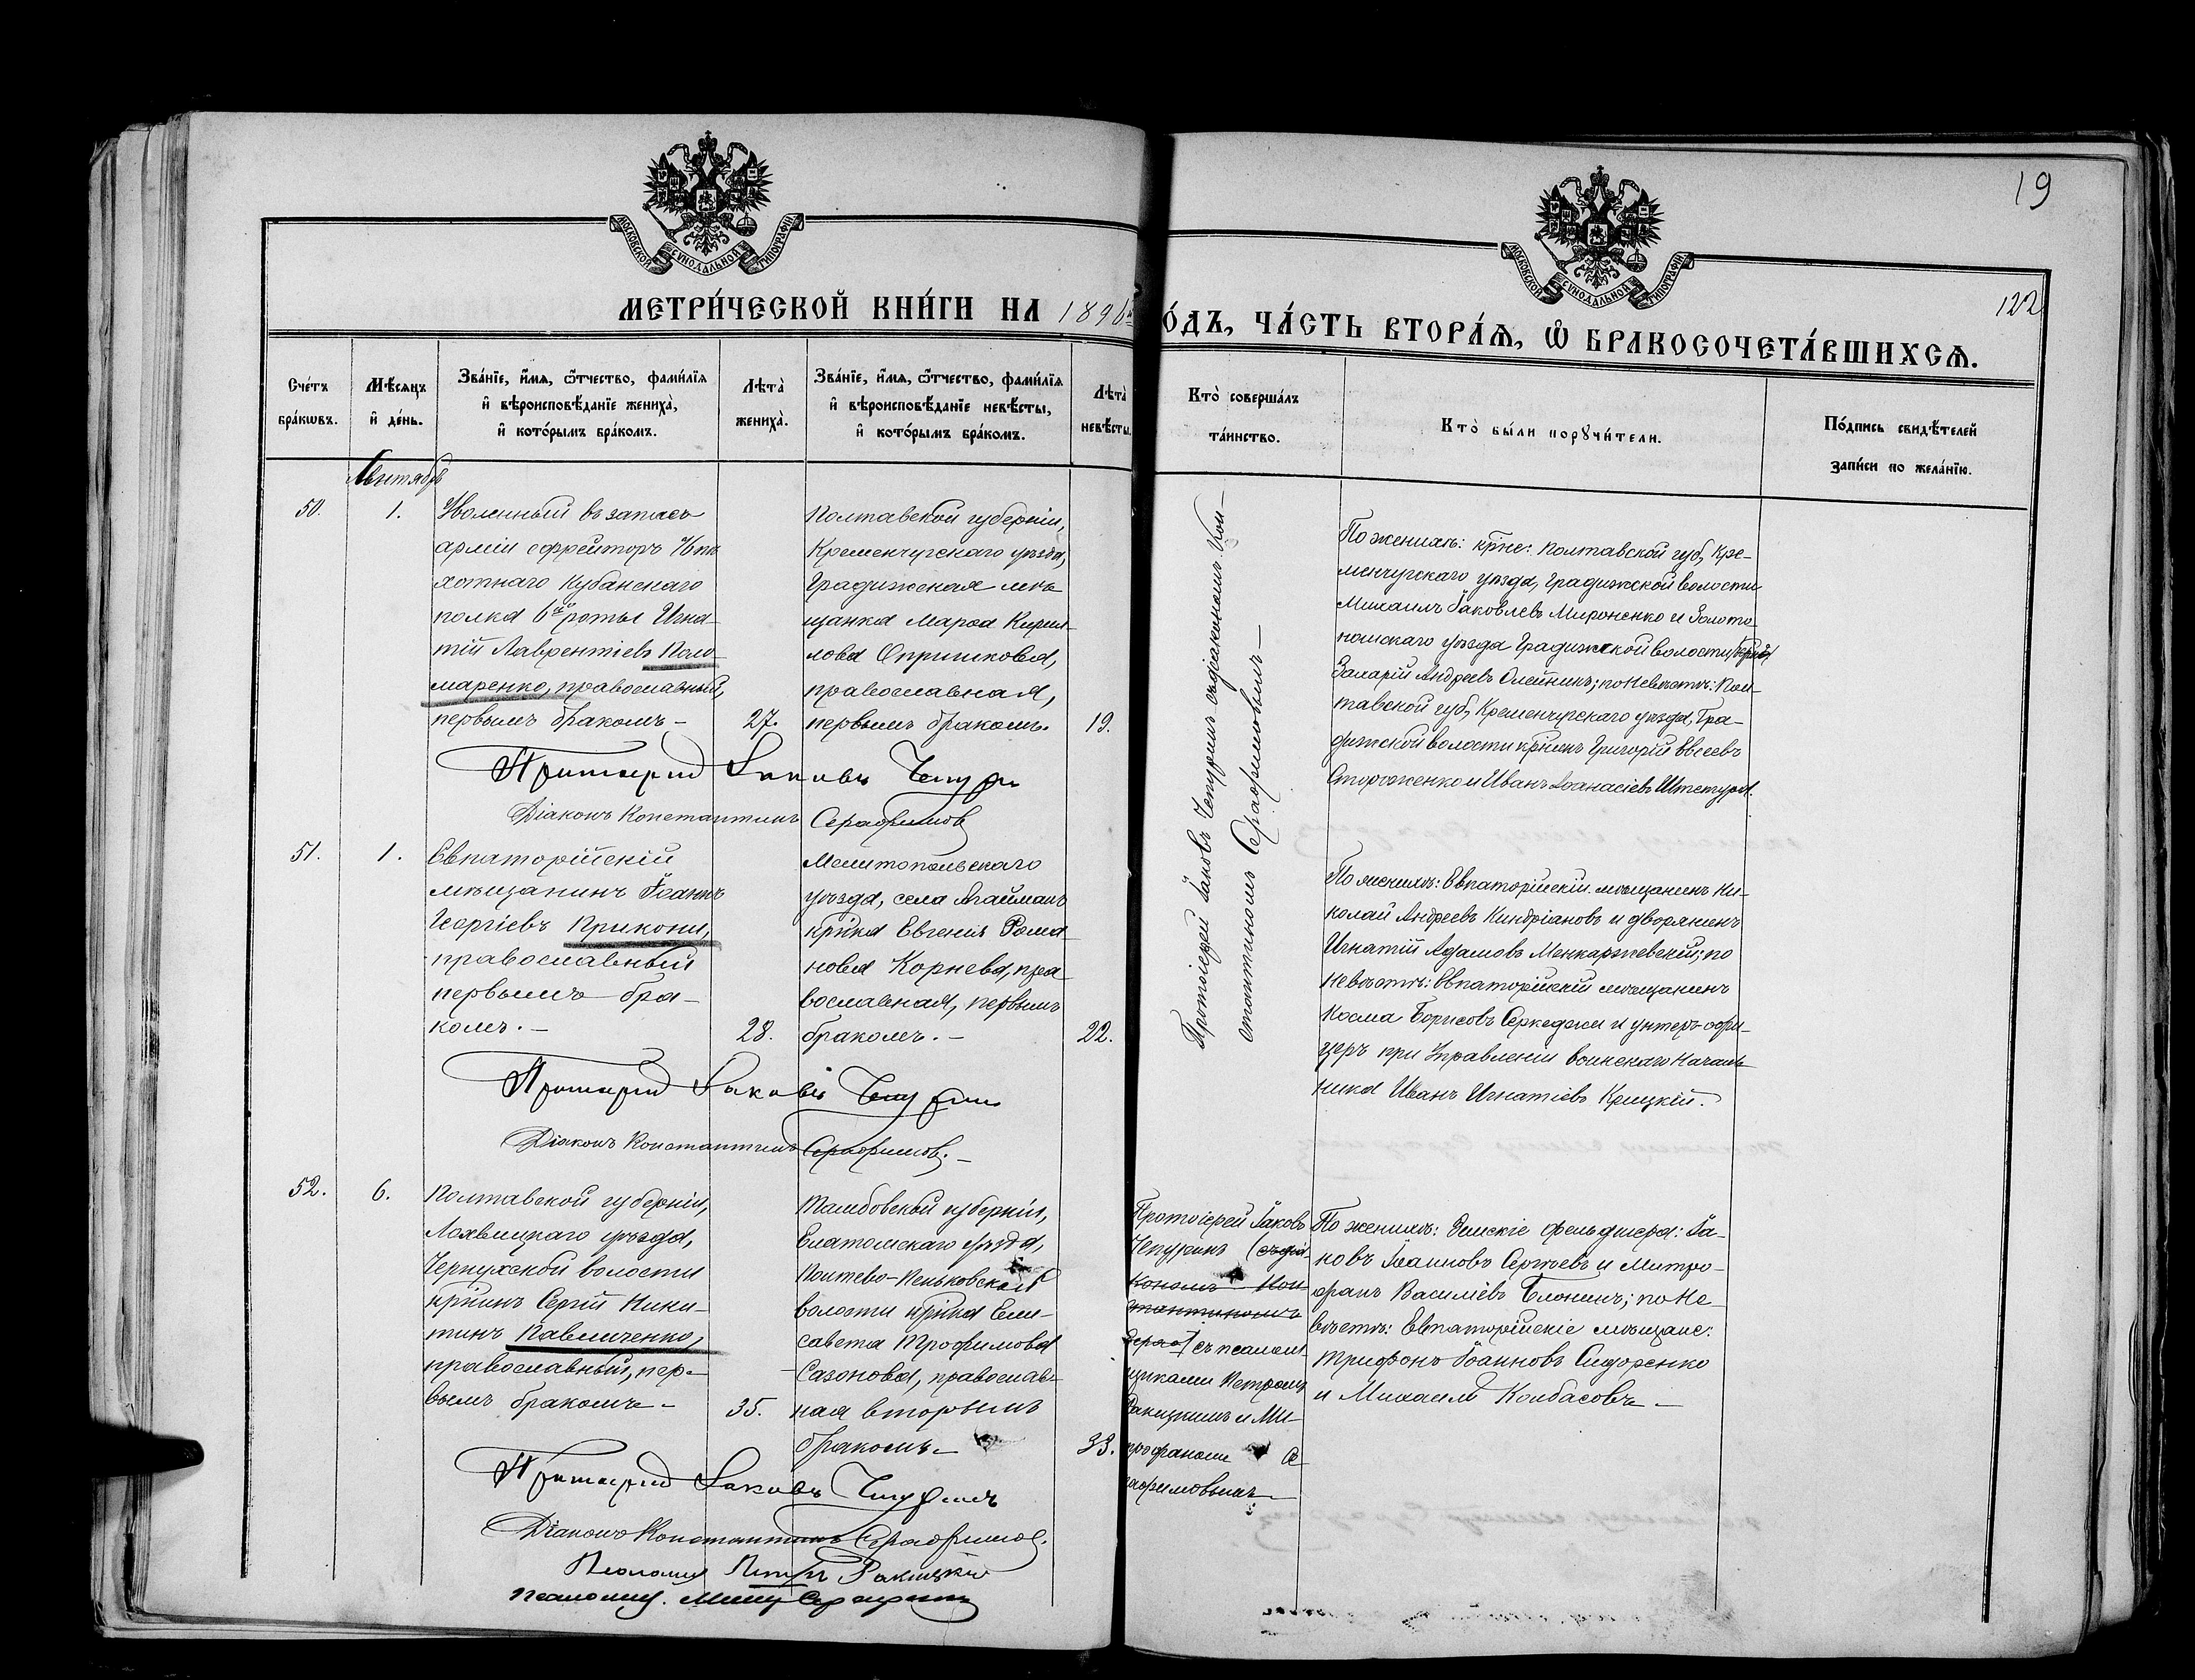 19
МОСКОВСКОЙ СѴНОДАЛЬНОЙ ТИПОГРАФІИ
МОСКОВСКОЙ СѴНОДАЛЬНОЙ ТИПОГРАФІИ
122
МЕТРИ́ЧЕСКОЙ КНИ́ГИ НА 1896
О́ДЪ, ЧА́СТЬ ВТОРА́Ѧ, Ѽ БРАКОСОЧЕТА́ВШИХСѦ.
Сче́тъ бра́кѡвъ.
Мѣ́сѧцъ и҆ де́нь.
Зва́нїе, и҆́мѧ, ѻ҆́тчество, фами́лїѧ и҆ вѣроисповѣ́данїе жениха̀, и҆ кото́рымъ бра́комъ.
Лѣ́та̀ жениха̀.
Зва́нїе, и҆́мѧ, ѻ҆́тчество, фами́лїѧ и҆ вѣроисповѣ́данїе невѣ́сты, и҆ кото́рымъ бра́комъ.
Лѣ́та̀ невѣ́сты.
Кто̀ соверша́лъ та́инство.
Кто̀ бы́ли порꙋчи́тели.
По́дпись свидѣ́телей за́писи по жела́нїю.
Сентябрь
50.
1.
Уволенный въ запасъ
арміи ефрейторъ пѣ
хотнаго Кубанскаго
полка 6ой роты Игна-
тій Лаврентіевъ Поло-
маренко, православный,
первымъ бракомъ -
27.
Полтавской губерніи,
Кременчугскаго уѣзда,
Градижская мѣ-
щанка Марѳа Кирил-
лова Опришкова,
православная,
первымъ бракомъ.
19.
Протоіерей Іаковъ Чепуринъ съ діакономъ Кон-
стантиномъ Серафимовымъ -
По женихѣ: крне: Полтавской губ, Кре-
менчугскаго уѣзда, Градижской волости
Михаилъ Іаковлевъ Мироненко и Золото-
ношскаго уѣзда Градижской волости
Захарій Андреевъ Олейникъ; по невѣстѣ: Пол-
тавской губ, Кременчугскаго уѣзда, Гра-
дижской волости крнинъ Григорій Евсеевъ
Стороженко и Иванъ Аѳанасіевъ Штетура.
Протоіерей Іаковъ Чепуринъ
Діаконъ Константинъ Серафимовъ
51.
1.
Евпаторійскій
мѣщанинъ Іоаннъ
Георгіевъ Прикони,
православный
первымъ бра-
комъ. -
28.
Мелитопольскаго
уѣзда, села Агайманъ
крнка Евгенія Рома-
нова Корнева, пра-
вославная, первымъ
бракомъ. -
22.
По женихѣ: Евпаторійскій мѣщанинъ Ни-
колай Андреевъ Киндріановъ и дворянинъ
Игнатій Адамовъ Менкаржевскій; по
невѣстѣ: Евпаторійскій мѣщанинъ
Косма Борисовъ Серкеджи и унтеръ-офи-
церъ при Управленіи воинскаго Началь-
ника Иванъ Игнатіевъ Крицкій.
Протоіерей Іаковъ Чепуринъ
Діаконъ Константинъ Серафимовъ. -
52.
6.
Полтавской губерніи,
Лохвицкаго уѣзда,
Чернухской волости
крнинъ Сергій Ники-
тинъ Павличенко,
православный, пер-
вымъ бракомъ -
35.
Тамбовской губерніи,
Елатомскаго уѣзда,
волости крнка Ели-
савета Трофимова
Сазонова, православ-
ная вторымъ
бракомъ -
33.
Протоіерей Іаковъ
Чепуринъ (съ діа-
кономъ Кон-
стантиномъ
Сераф) съ псалом-
щиками Петромъ
Ракицкимъ и Ми-
трофаномъ Се-
рафимовымъ -
По женихѣ: Земскіе фельдшера: Іа-
ковъ Іоанновъ Сергѣевъ и Митро-
фанъ Василіевъ Блохинъ; по не-
вѣстѣ: Евпаторійскіе мѣщане:
Трифонъ Іоанновъ Сидоренко
и Михаилъ Колбасовъ -
Протоіерей Іаковъ Чепуринъ
Діаконъ Константинъ Серафимовъ.
Псаломщ Петръ Ракицкій
Псаломщ. Митр Серафимовъ